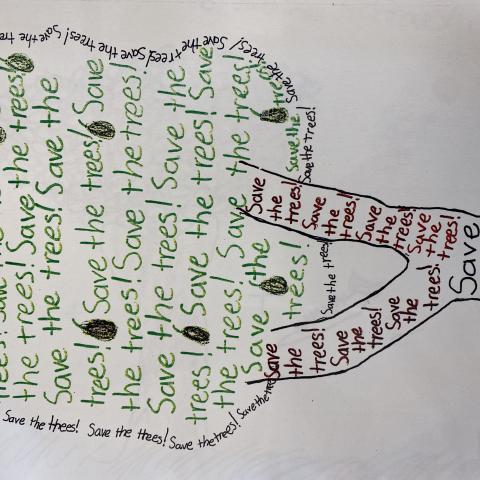 trees! Save the
the trees! Save the trees!
Save the trees! Save the
trees! Save the trees! Save
the trees! Save the trees!
Save the trees! Save the
trees! Save the trees! Save
the trees! Save the trees!
Save the
trees!
Save the
Save the trees! Save the trees! Save the trees! Save the trees
Save the trees! Save the trees! Save the trees! Save the trees! Save the trees!
Save the trees!
Save the trees!
Save
the
trees!
Save
the
trees!
Save
the
trees!
Save
the
trees!
Save
the
trees!
Save
the
trees!
Save
the
trees!
Save